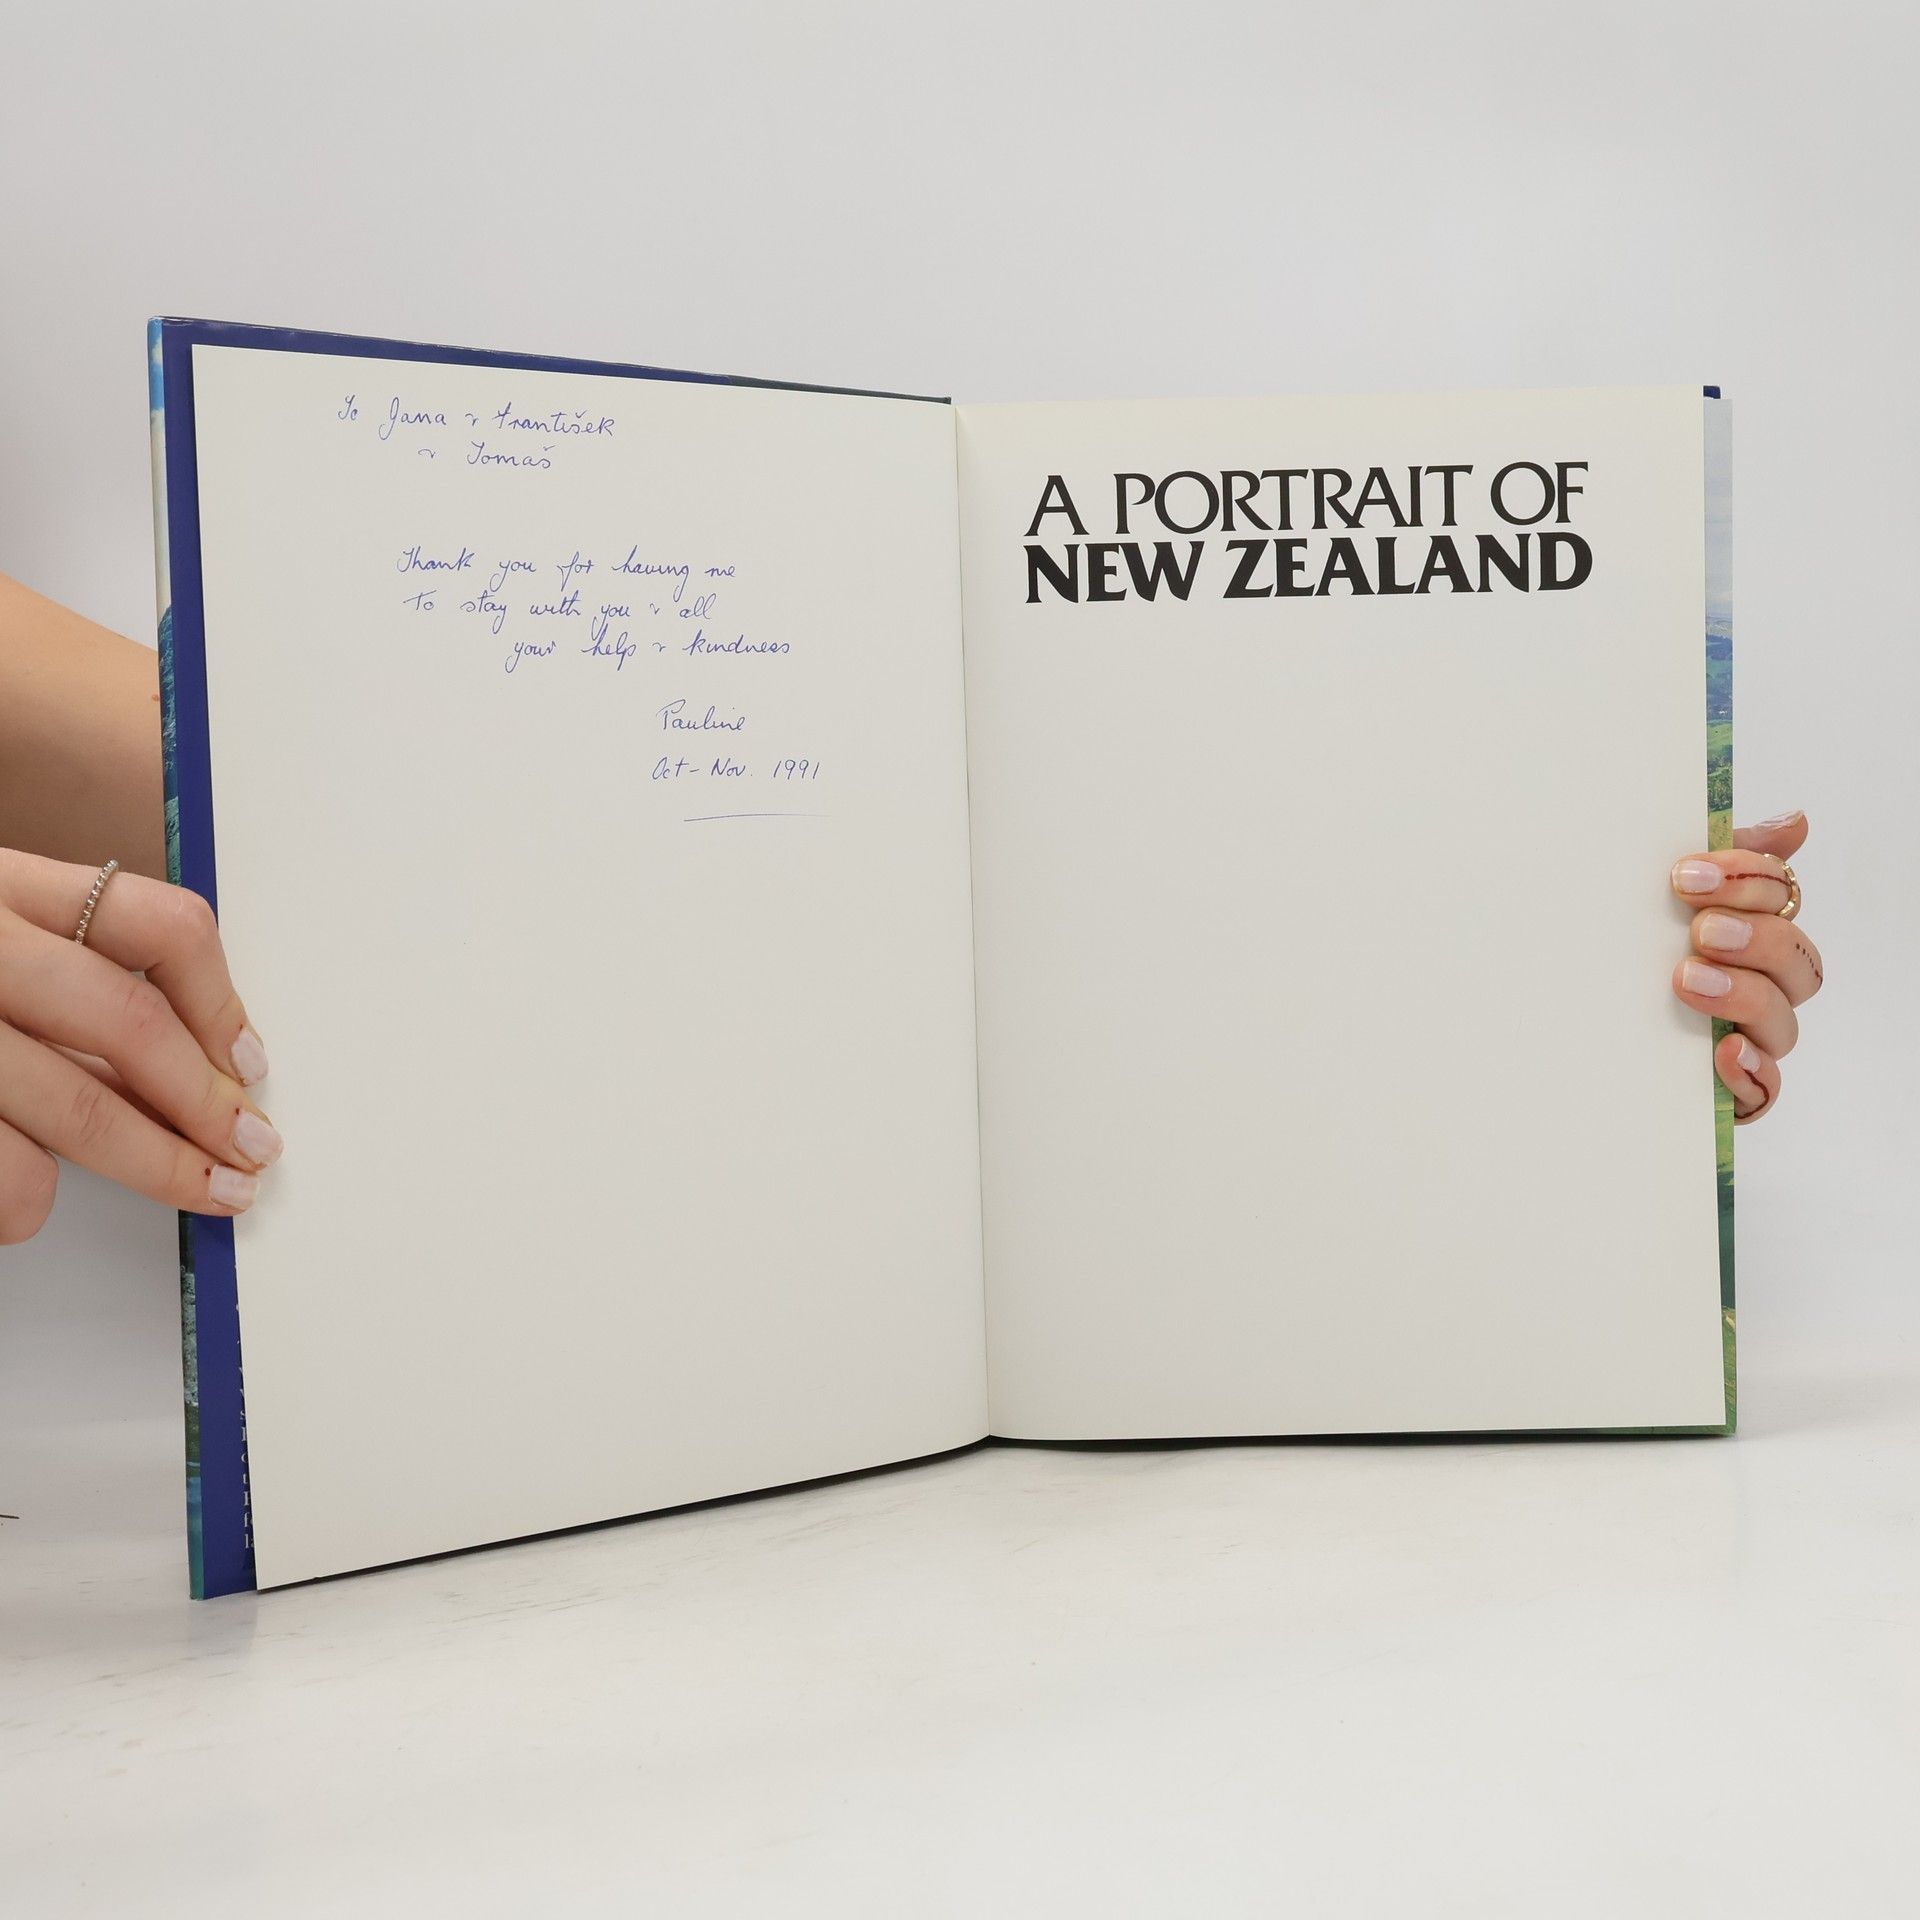 To Jana & František
& Tomaš
Thank you for having me
To stay with you & all
your help & kindness
Pauline
Oct - Nov. 1991
A PORTRAIT OF
NEW ZEALAND